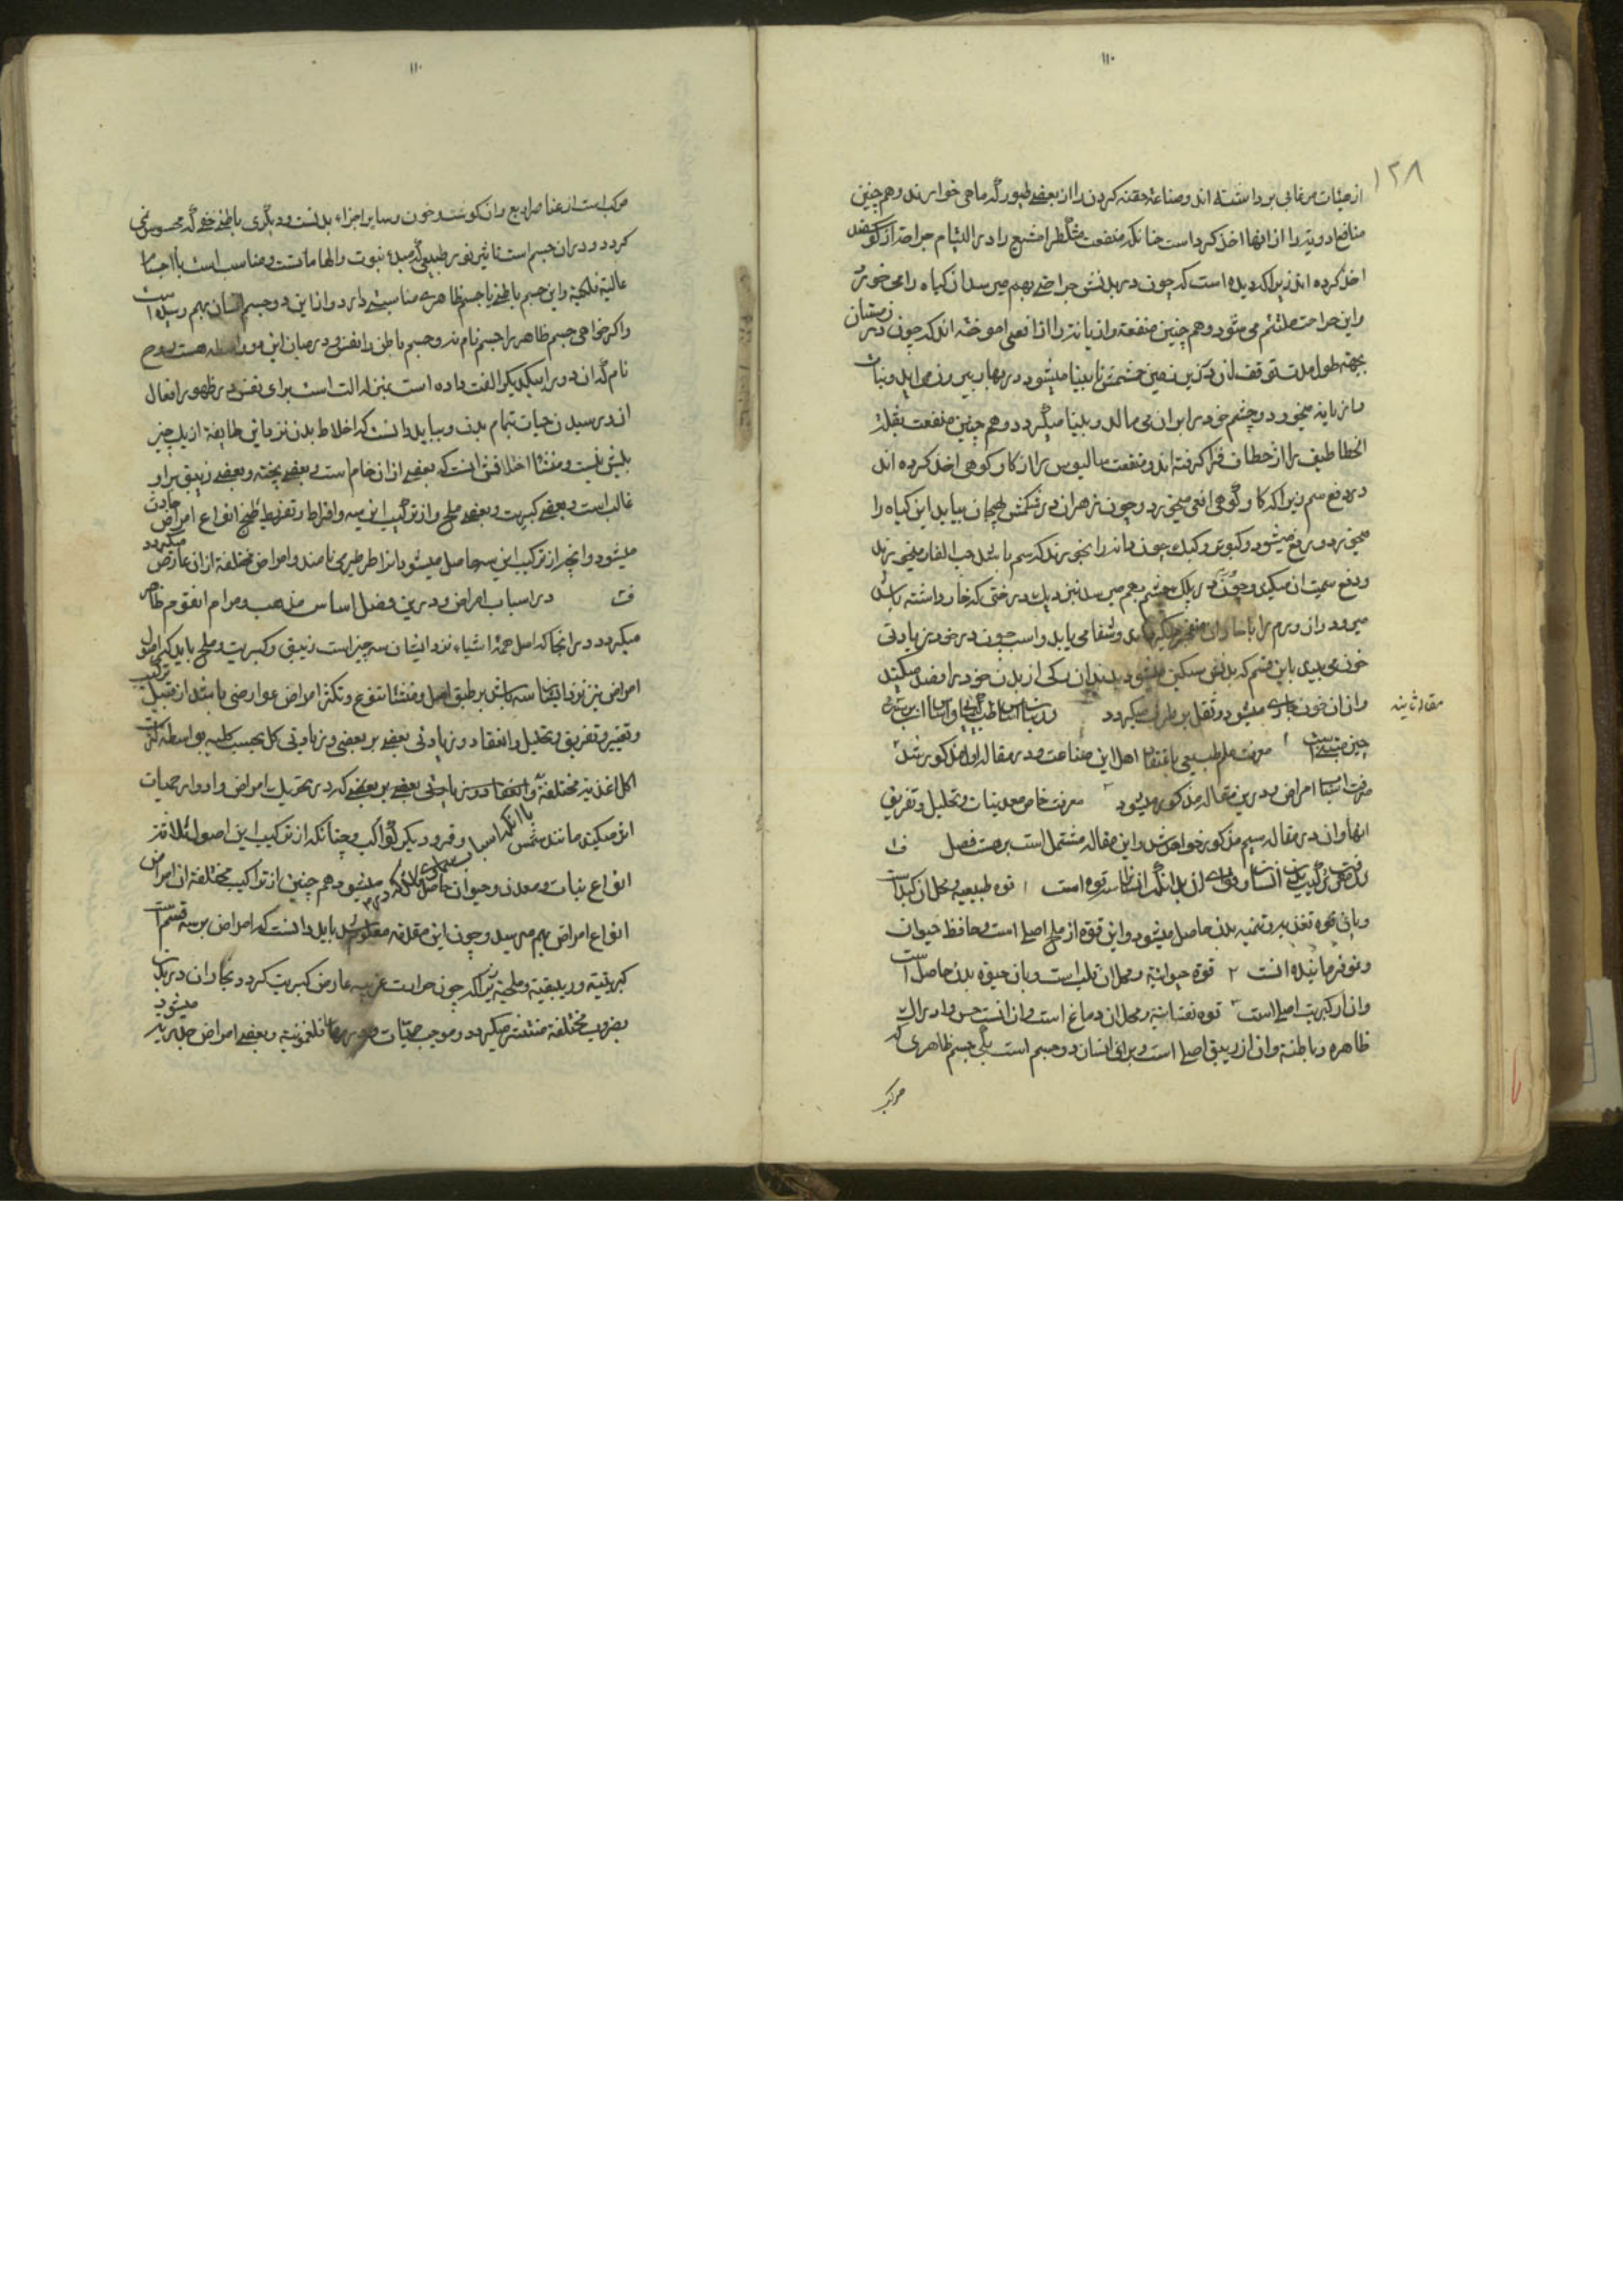 ۱۱۰
۱۲۸
از هیئات مرغابی برداشته اند و صناعة حقنه کردن را از بعضے طیور که ماهی خوارند و هم چنین
منافع ادویه را از انها اخذ کرد است چنانکه منفعت مشکطرامشیع را در التیام جراحت از کوسفند
اخذ کرده اند زیرا که دیده است که چون در بدنش جراحتے بهم میرسد ان کیاه را می خورد
و این جراحت ملتئم می شود و هم چنین منفعت رازیانه را از افعی اموخته اند که چون در زمستان
بجهة طول مدت توقف ان در زیر زمین چشمش نابینا میشود در بهار بیرون می اید و نبات
رازیانه میخورد و چشم خود را بران می مالد و بینا میکردد و هم چنین منفعت بقلة
الخطاطیف را از خطاف فرا کرفته اند و منفعت را از کاو کوهی اخذ کرده اند
در دفع سم زیرا که کاو کوهی افعی میخورد و چون زهر ان در شکمش بهیجان بیاید این کیاه را
میخورد و رفع میشود و کبوتر و کبک چون دانه را بخورند که سم باشد حب الغار میخورند
و دفع سمیت ان میکند و چون در پلک چشم ورم بهم میرسد نزدیک درختی که خار داشته باشد
میرود و ان ورم را با خار ان منفجر میکرداند و شفا می یابد و اسب چون در خود زیادتی
خون می بیند باین قسم که بدنش سنکین میشود بدندان رکی از بدن خود را فصد میکند
و از ان خون جاری میشود و ثقل برطرف میکردد
مقالة ثانیه
چیز مبتنے است ۱ معرفت علم طبیعی باعتقاد اهل این صناعت و در مقاله اول مذکور شد ۲
معرفت اسباب امراض و درین مقاله مذکور میشود ۳ معرفت خاص معدنیات و تحلیل و تفریق
انها و ان در مقاله سیم مذکور خواهد شد و این مقاله مشتمل است بر هشت فصل ف
در ترکیب بدن انسان و قوای ان بدانکه انسان را سه قوه است ۱ قوه طبیعیه و محل ان کبد است
و باین قوه تغذیه و تنمیه بدن حاصل میشود و این قوه از ملح اصلے است و حافظ حیوان
و نمو فرماینده انست ۲ قوه حیوانیة و محل ان قلب است و بان حیوة بدن حاصل است
و ان از کبریت اصلے است ۳ قوه نفسانیة و محل ان دماغ است و از انست حس و ادراک
ظاهره و باطنة و ان از زیبق اصلے است و برای انسان دو جسم است یکی جسم ظاهری که
مرکب
۱۱۰
مرکب است از عناصر اربع و ان کوشت و خون و سایر اجزاء بدنست و دیکری باطنے خفے که محسوس نمی
کردد و در ان جسم است تاثیر نور طبیعی که مبدء نبوت و الهاماتست و مناسب است با اجسام
عالیة فلکیة و این جسم باطنے با جسم ظاهرے مناسبتے دارد و از این دو جسم انسان بهم رسیده است
و اکر خواهی جسم ظاهر را جسم نام نه و جسم باطن را نفس و در میان این دو واسطه هست روح
نام که ان دو را بیکدیکر الفت داده است بمنزله الت است برای نفس در ظهور افعال
ان در رسیدن حیات بتمام بدن و بباید دانست که اخلاط بدن نزد این طایفة از یک چیز
بیش نیست و منشا اختلافش انست که بعضے از ان خام است و بعضے پخته و بعضے زیبق بر او
غالب است و بعضے کبریت و بعضے ملح و از ترکیب این سه و افراط و تفریط طبخ انواع امراض حادث
میشود و انچه از ترکیب این سه حاصل میشود انرا طرطیر می نامند و امراض مختلفة از ان عارض میکردد
ف در اسباب امراض و درین فصل اساس مذهب و مرام انقوم ظاهر
میکردد و در انجا که اصل همه اشیاء نزد ایشان سه چیز است زیبق و کبریت و ملح باید که اصول
امراض نیز نزد ایشان سه باشد بر طبق اصل و منشا تنوع و تکثر امراض عوارضی باشد از قبیل ترکیب
و تغییر و تفریق و تحلیل و انعقاد و زیادتی بعضے بر بعضی و زیادتی کل بحسب کلیه بواسطه کثرت
اکل اغذیة مختلفة و انعقاد و زیادتی بعضے بر بعضے که در تحریک امراض و ادوار حمیات
اثر میکند مانند شمس و قمر و دیکر کواکب و چنانکه از ترکیب این اصول ثلاثة
انواع نبات و معدن و حیوان حاصل میشود هم چنین از تراکیب مختلفة ان امراض
انواع امراض بهم میرسد و چون این مقدمه معلوم شد باید دانست که امراض بر سه قسم است
کبریتیة و زیبقیة و ملحیة زیرا که چون حرارت غریبه عارض کبریت کردد و بخار ان در بدن
بضروب مختلفة منتشر میکردد و موجب حمیات و ورمهای فلغمونیة و بعضے امراض جلدیه میشود